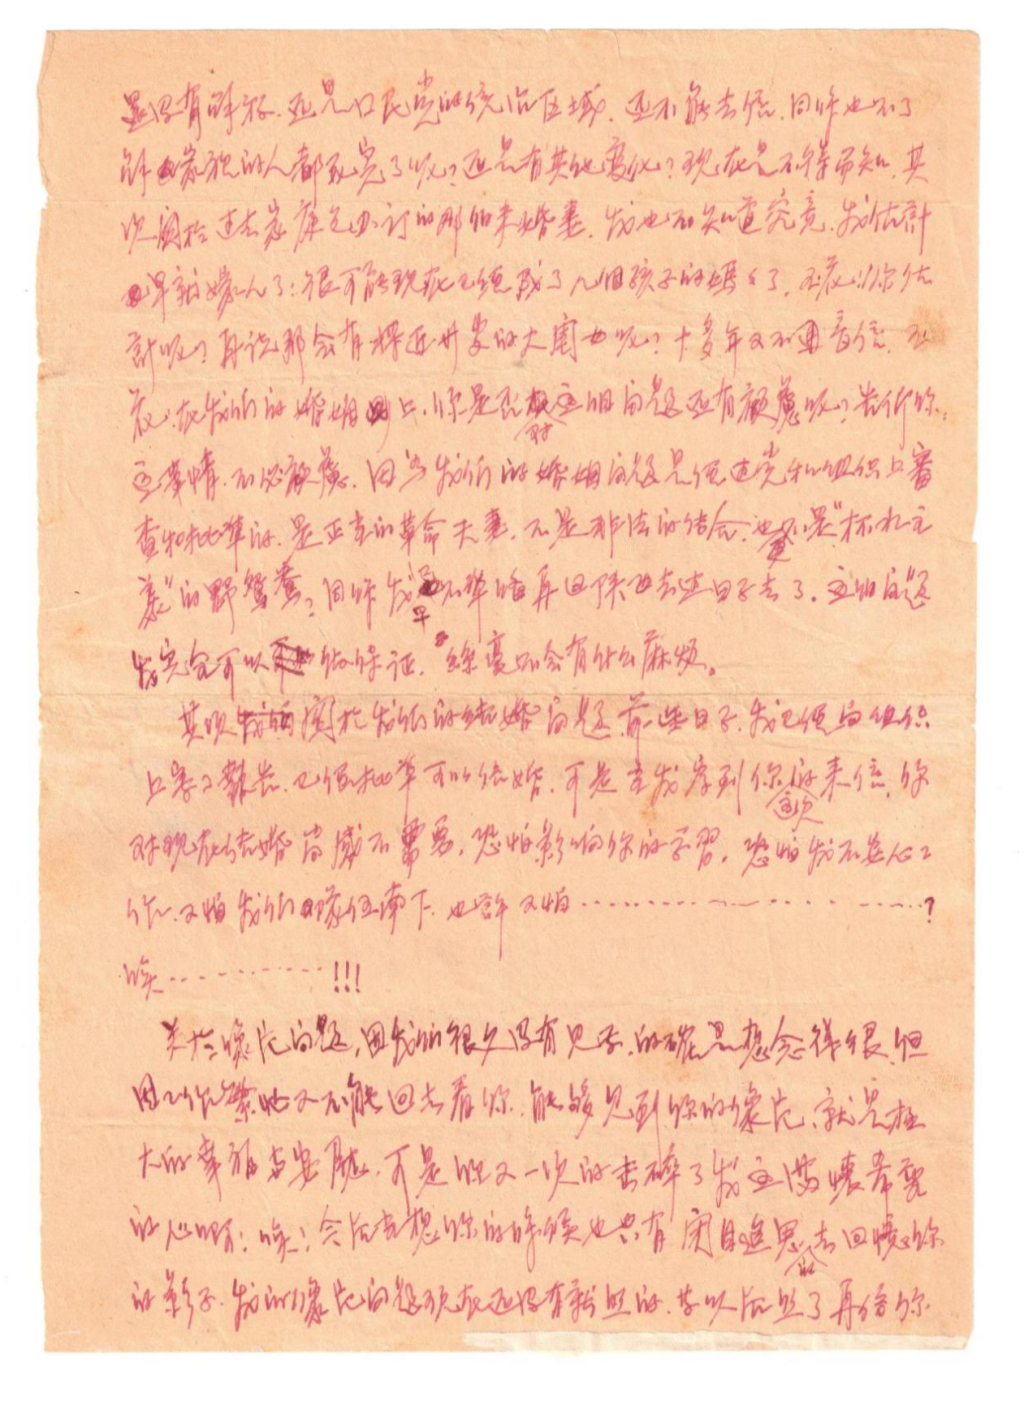 还没有解放，还是国民党的统治区域，还不能去信，同时也不了
解家视的人都死完了呢？还是有其他变化？现在是不得而知，其
次関於过去家庭包办订的那個未婚妻，我也不知道究竟，我估計
早就嫁人了；很可能现在已经成了几個孩子的媽々了，玉衣，你估
計呢？再说那会有将近廿岁的大闺女呢？十多年又不通音信，玉
衣，在我们的婚姻上，你是否对这個问题还有顧慮呢？告诉你：
这事情，不必顧慮，因为我们的婚姻问题是经过党和組织上審
查和批準的，是正当的革命夫妻，不是非法的结合，也不是“杯水主
義”的野鴛鴦，同時我早不準备再回陕西去过日子去了，这個问题
我完全可以做保证，絲毫不会有什么麻烦。
其次関於我们的结婚问题，前些日子，我已经向组织
上写了報告，已经批準可以结婚，可是当我接到你这次的来信，你
对现在结婚尚感不需要，恐怕影响你的学習，恐怕我不安心工
作，又怕我们隊伍南下，也許又怕……………………？
唉…………!!!
关於像片问题，因我们很久没有见面，的確思想念得很，但
因工作繁忙又不能回去看你，能够见到你的像片，就是極
大的幸福与安慰，可是你又一次的击碎了我这满懷希望
的心啊！唉！今后当想你的時候也只有闭目追思去回憶你
的影子，我的像片问题现在还没有新照的，等以后照了再给你